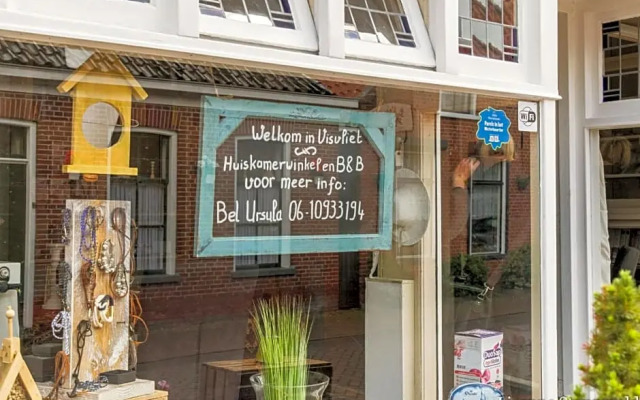 Welkom in Visvliet
Huiskamerwinkel en B&B
voor meer info:
Bel Ursula 06-10933194
WiFi